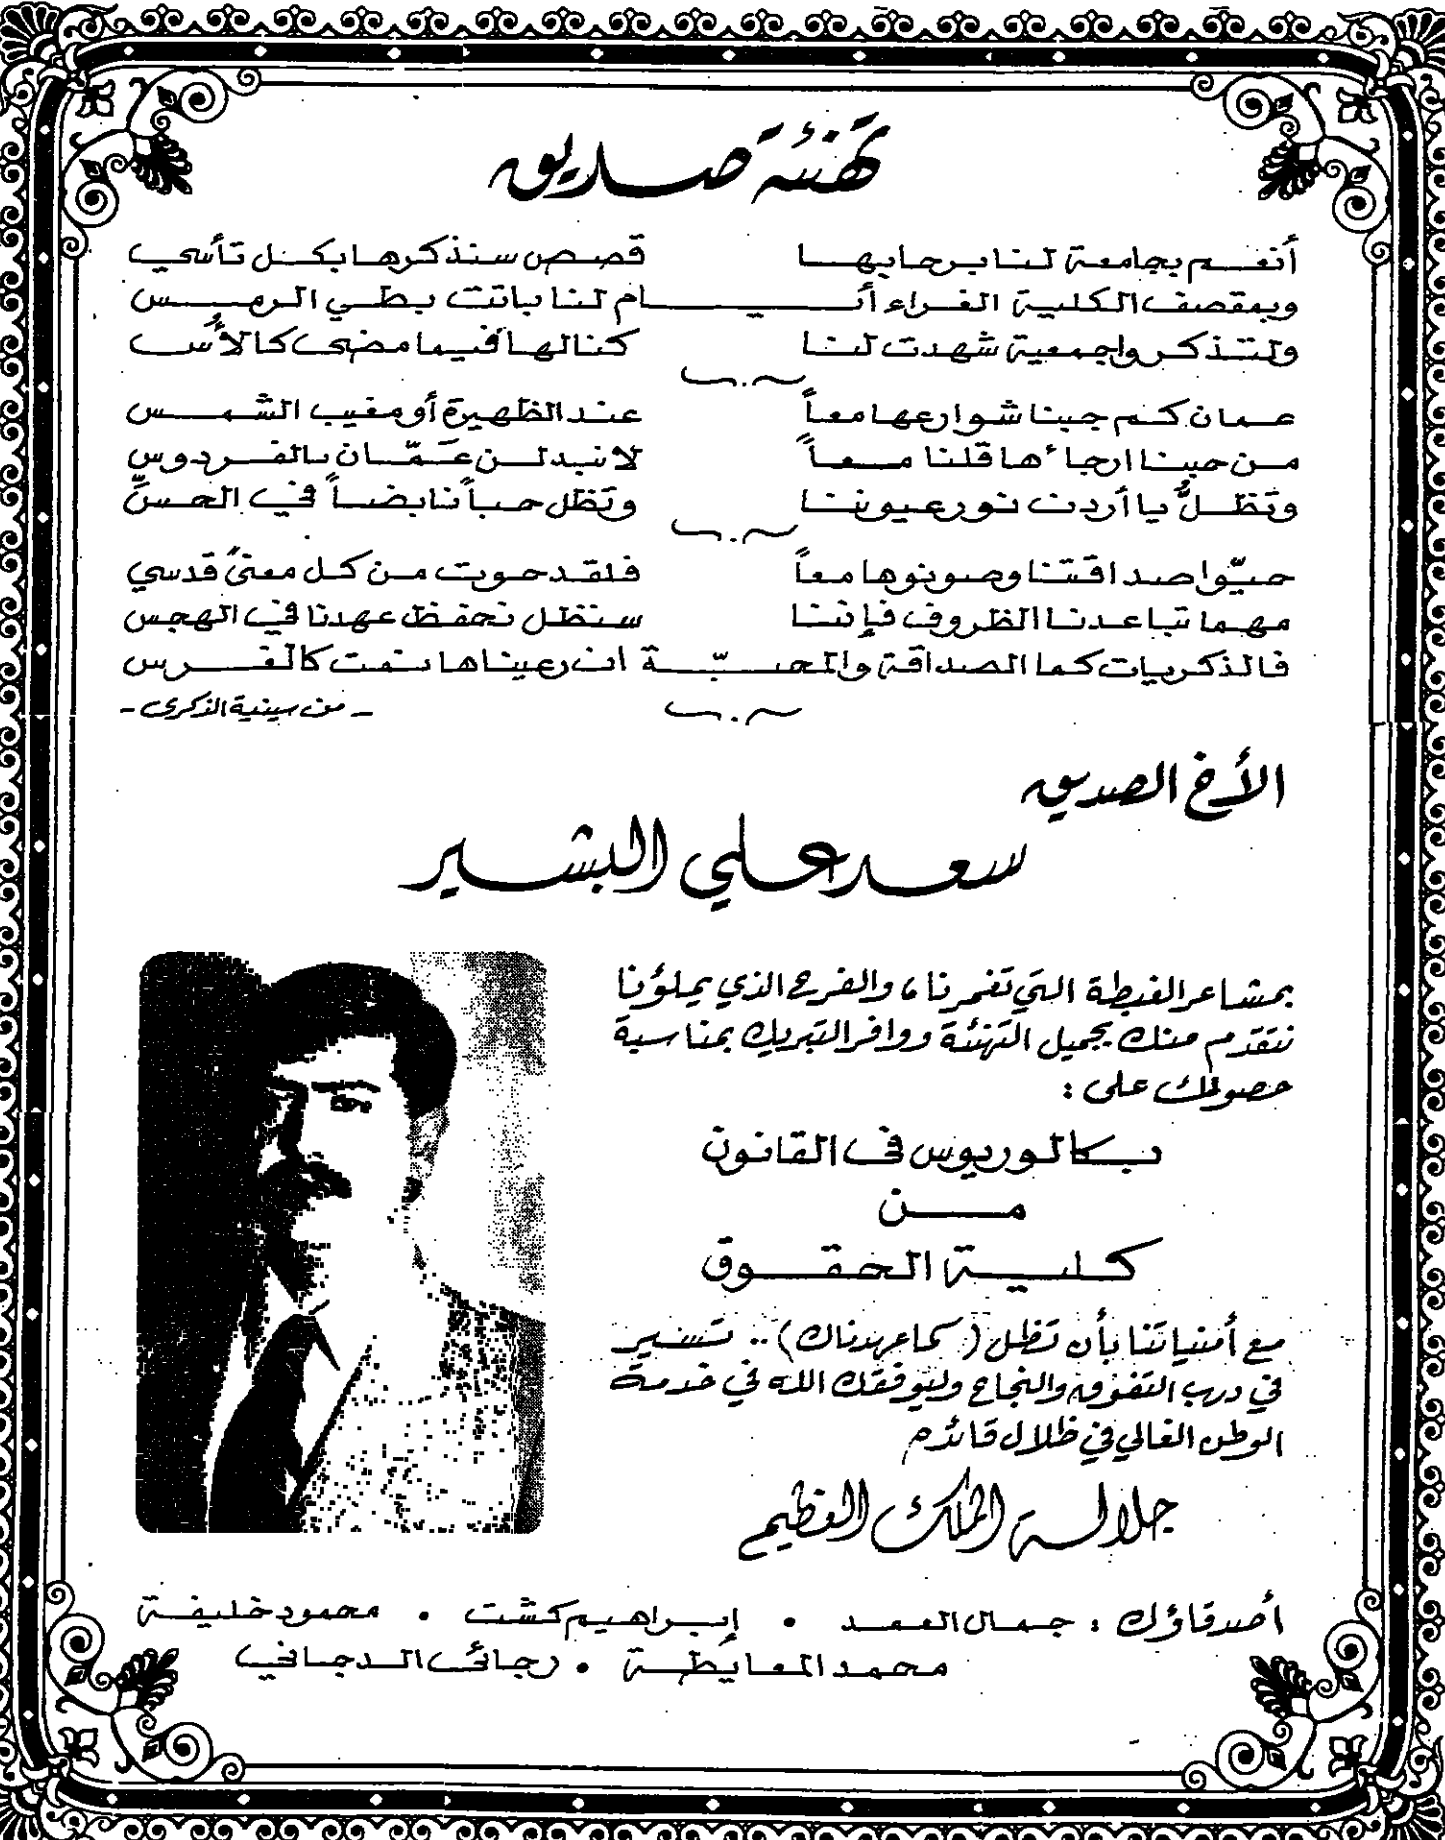 تهنئة صديق
أنعم بجامعة لنا برحابها قصص سنذكرها بكل تأسي
وبمقصف الكلية الغراء أيام لنا باتت بطي الرمس
ولتذكروا جمعية شهدت لنا كنا لها فيما مضى كالأُس
عمان كم جبنا شوارعها معاً عند الظهيرة أو مغيب الشمس
من حبنا ارجاءها قلنا معاً لا نبدلن عَمّان بالفردوس
وتظلُّ يا أردن نور عيوننا وتظل حباً نابضاً في الحسِّ
حيّوا صداقتنا وصونوها معاً فلقد حوت من كل معنىً قدسي
مهما تباعدنا الظروف فإننا سنظل نحفظ عهدنا في الهجس
فالذكريات كما الصداقة والمحبّة ان رعيناها نمت كالغرس
- من سينية الذكرى -
الأخ الصديق
سعد علي البشير
بمشاعر الغبطة التي تغمرنا، والفرح الذي يملؤنا
نتقدم منك بجميل التهنئة ووافر التبريك بمناسبة
حصولك على :
بكالوريوس في القانون
من
كلية الحقوق
مع أمنياتنا بأن تظل (كما عهدناك) .. تسير
في درب التفوق والنجاح وليوفقك الله في خدمة
الوطن الغالي في ظلال قائده
جلالة الملك العظيم
أصدقاؤك : جمال العمد • إبراهيم كشت • محمود خليفة
محمد المعايطة • رجائي الدجاني